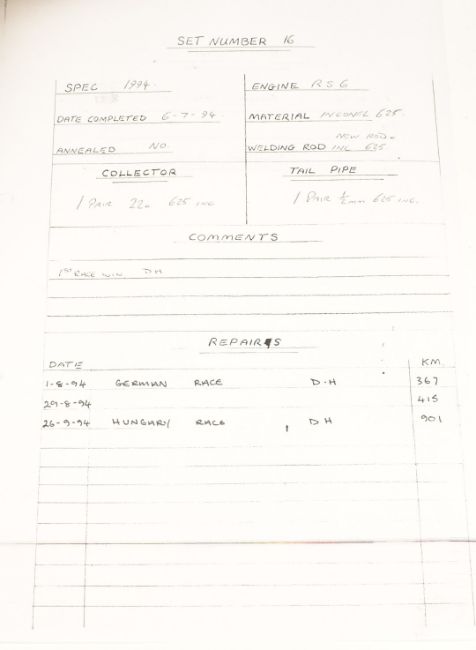 SET NUMBER 16
SPEC 1994.
ENGINE RS6
DATE COMPLETED 6-7-94.
MATERIAL INCONEL 625.
ANNEALED NO.
NEW ROD.
WELDING ROD INC 625
COLLECTOR
TAIL PIPE
1 PAIR 625 INC
1 PAIR 625 INC.
COMMENTS
1ST RACE WIN DH
REPAIRS
DATE KM.
1-8-94 GERMAN RACE D.H 367
29-8-94 415
26-9-94 HUNGARY RACE DH 901